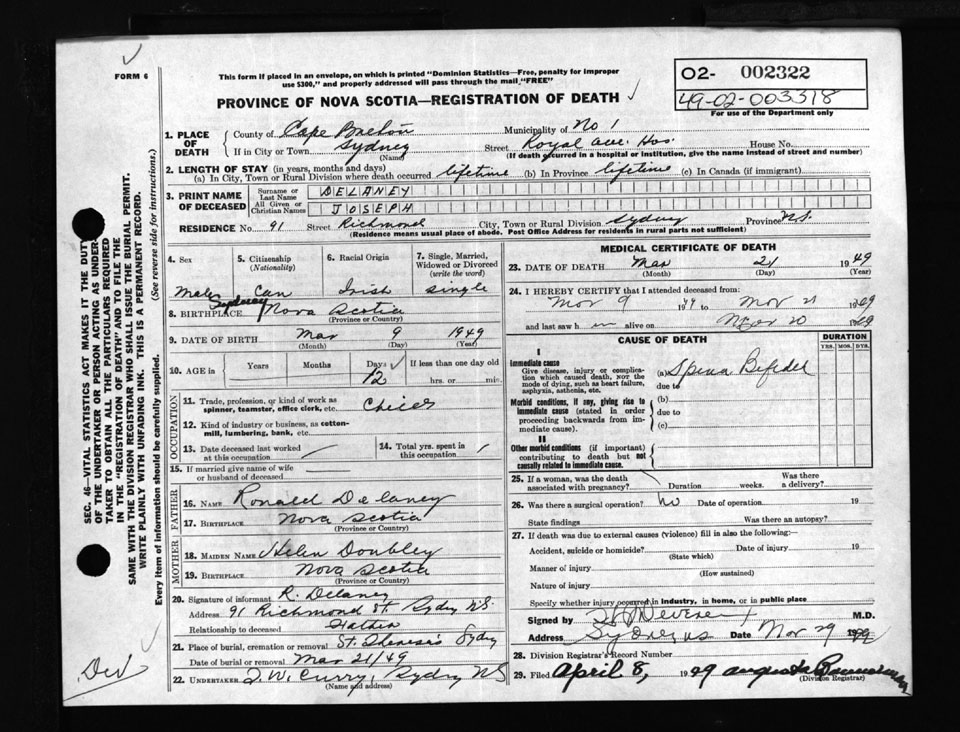 FORM 6
This form if placed in an envelope, on which is printed "Dominion Statistics—Free, penalty for improper
use $300," and properly addressed will pass through the mail "FREE"
O2- 002322
49-02-003318
For use of the Department only
PROVINCE OF NOVA SCOTIA—REGISTRATION OF DEATH
1. PLACE OF DEATH
County of Cape Breton Municipality of No 1
If in City or Town Sydney Street Royal Ave. Hos. House No.
(Name) (If death occurred in a hospital or institution, give the name instead of street and number)
2. LENGTH OF STAY (in years, months and days)
(a) In City, Town or Rural Division where death occurred lifetime (b) In Province lifetime (c) In Canada (if immigrant)
3. PRINT NAME OF DECEASED
Surname or Last Name DELANEY
All Given or Christian Names JOSEPH
RESIDENCE No. 91 Street Richmond City, Town or Rural Division Sydney Province N.S.
(Residence means usual place of abode. Post Office Address for residents in rural parts not sufficient)
4. Sex
5. Citizenship (Nationality)
6. Racial Origin
7. Single, Married, Widowed or Divorced (write the word)
male Can Irish single
8. BIRTHPLACE Sydney Nova Scotia
(Province or Country)
9. DATE OF BIRTH Mar 9 1949
(Month) (Day) (Year)
10. AGE in Years Months Days If less than one day old
12 hrs. or min.
OCCUPATION
11. Trade, profession, or kind of work as
spinner, teamster, office clerk, etc.
12. Kind of industry or business, as cotton-
mill, lumbering, bank, etc.
13. Date deceased last worked
at this occupation
14. Total yrs. spent in
this occupation
15. If married give name of wife
or husband of deceased
FATHER
16. NAME Ronald Delaney
17. BIRTHPLACE Nova Scotia
(Province or Country)
MOTHER
18. MAIDEN NAME Helen
19. BIRTHPLACE Nova Scotia
(Province or Country)
20. Signature of informant R. Delaney
Address 91 Richmond St. Sydney N.S.
Relationship to deceased Father
21. Place of burial, cremation or removal St. Sydney
Date of burial or removal Mar 21/49
22. UNDERTAKER T.W. Curry, Sydney N.S
(Name and address)
MEDICAL CERTIFICATE OF DEATH
23. DATE OF DEATH Mar 21 1949
(Month) (Day) (Year)
24. I HEREBY CERTIFY that I attended deceased from
Mar 9 1949 to Mar 21 1949
and last saw h im alive on Mar 20 1949
CAUSE OF DEATH
DURATION
YRS. MOS. DYS.
I
Immediate cause
Give disease, injury or complica-
tion which caused death, nor the
mode of dying, such as heart failure,
asphyxia, asthenia, etc.
(a) Spina Bifida
due to
Morbid conditions, if any, giving rise to
immediate cause (stated in order
proceeding backwards from im-
mediate cause).
(b)
due to
(c)
II
Other morbid conditions (if important)
contributing to death but not
causally related to immediate cause.
25. If a woman, was the death
associated with pregnancy? Duration weeks. Was there
a delivery?
26. Was there a surgical operation? No Date of operation 19
State findings Was there an autopsy?
27. If death was due to external causes (violence) fill in also the following:—
Accident, suicide or homicide? Date of injury 19
(State which)
Manner of injury
(How sustained)
Nature of injury
Specify whether injury occurred in industry, in home, or in public place
Signed by M.D.
Address Sydney NS Date Mar 29 1949
28. Division Registrar's Record Number
29. Filed April 8, 1949
(Division Registrar)
SEC. 46—VITAL STATISTICS ACT MAKES IT THE DUTY
OF THE UNDERTAKER OR PERSON ACTING AS UNDER-
TAKER TO OBTAIN ALL THE PARTICULARS REQUIRED
IN THE "REGISTRATION OF DEATH" AND TO FILE THE
SAME WITH THE DIVISION REGISTRAR WHO SHALL ISSUE THE BURIAL PERMIT.
WRITE PLAINLY WITH UNFADING INK. THIS IS A PERMANENT RECORD.
Every item of information should be carefully supplied. (See reverse side for instructions.)